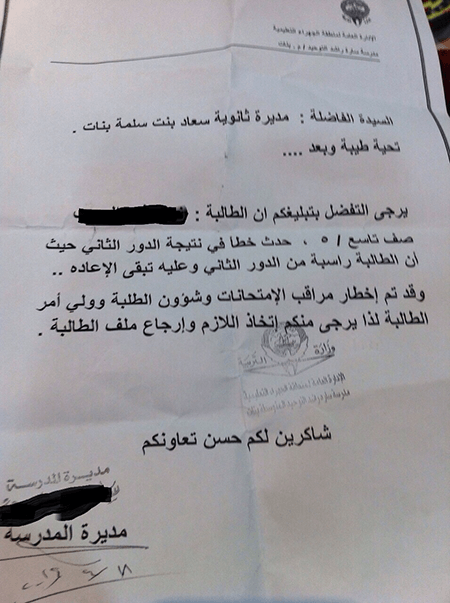 الإدارة العامة لمنطقة الجهراء التعليمية
مدرسة سارة راشد التوحيد / م. بنات
السيدة الفاضلة : مديرة ثانوية سعاد بنت سلمة بنات .
تحية طيبة وبعد ....
يرجى التفضل بتبليغكم ان الطالبة :
صف تاسع / ٥ ، حدث خطا في نتيجة الدور الثاني حيث
أن الطالبة راسبة من الدور الثاني وعليه تبقى الإعاده ..
وقد تم إخطار مراقب الإمتحانات وشؤون الطلبة وولي أمر
الطالبة لذا يرجى منكم إتخاذ اللازم وإرجاع ملف الطالبة .
وزارة التربية
الإدارة العامة لمنطقة الجهراء التعليمية
شاكرين لكم حسن تعاونكم
مديرة المدرسة
مديرة المدرسه